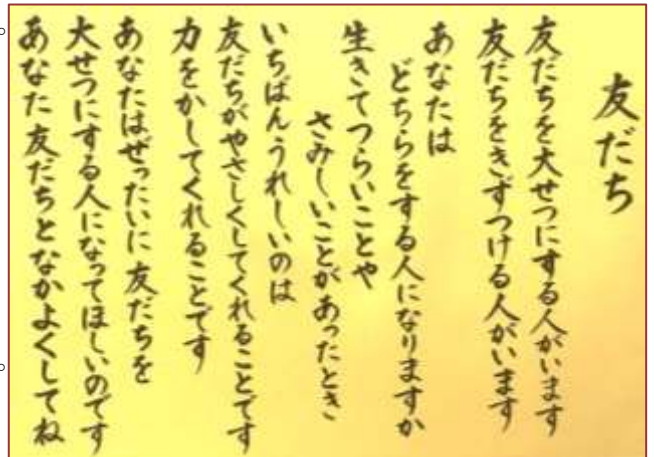 友だち
友だちを大せつにする人がいます
友だちをきずつける人がいます
あなたは
どちらをする人になりますか
生きてつらいことや
さみしいことがあったとき
いちばんうれしいのは
友だちがやさしくしてくれることです
力をかしてくれることです
あなたはぜったいに友だちを
大せつにする人になってほしいのです
あなた友だちとなかよくしてね